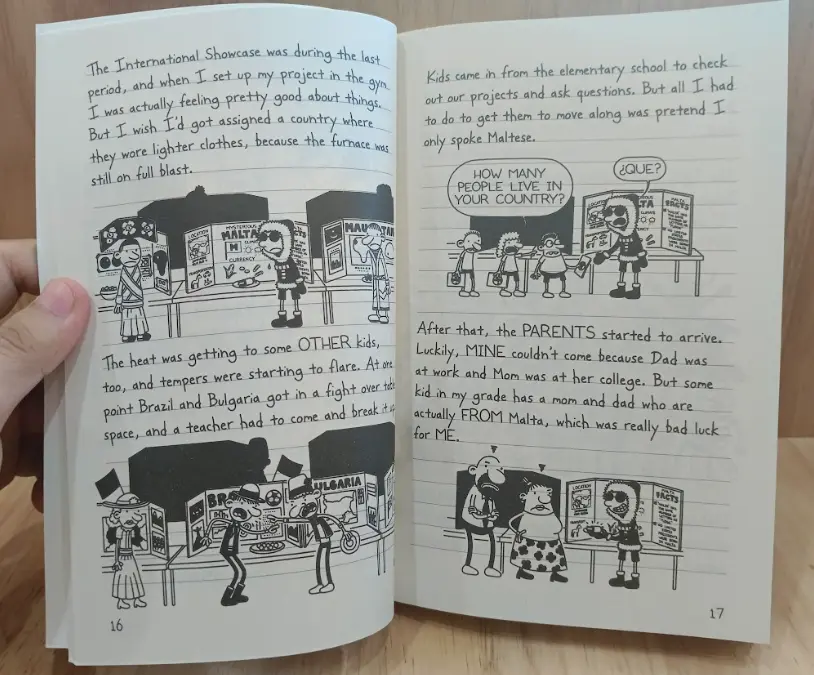 The International Showcase was during the last
period, and when I set up my project in the gym
I was actually feeling pretty good about things.
But I wish I'd got assigned a country where
they wore lighter clothes, because the furnace was
still on full blast.
LOCATION
MYSTERIOUS
MALTA
CURRENCY
The heat was getting to some OTHER kids,
too, and tempers were starting to flare. At one
point Brazil and Bulgaria got in a fight over
space, and a teacher had to come and break it
16
Kids came in from the elementary school to check
out our projects and ask questions. But all I had
to do to get them to move along was pretend I
only spoke Maltese.
HOW MANY
PEOPLE LIVE IN
YOUR COUNTRY?
¿QUE?
FACTS
After that, the PARENTS started to arrive.
Luckily, MINE couldn't come because Dad was
at work and Mom was at her college. But some
kid in my grade has a mom and dad who are
actually FROM Malta, which was really bad luck
for ME.
LOCATION
FACTS
17